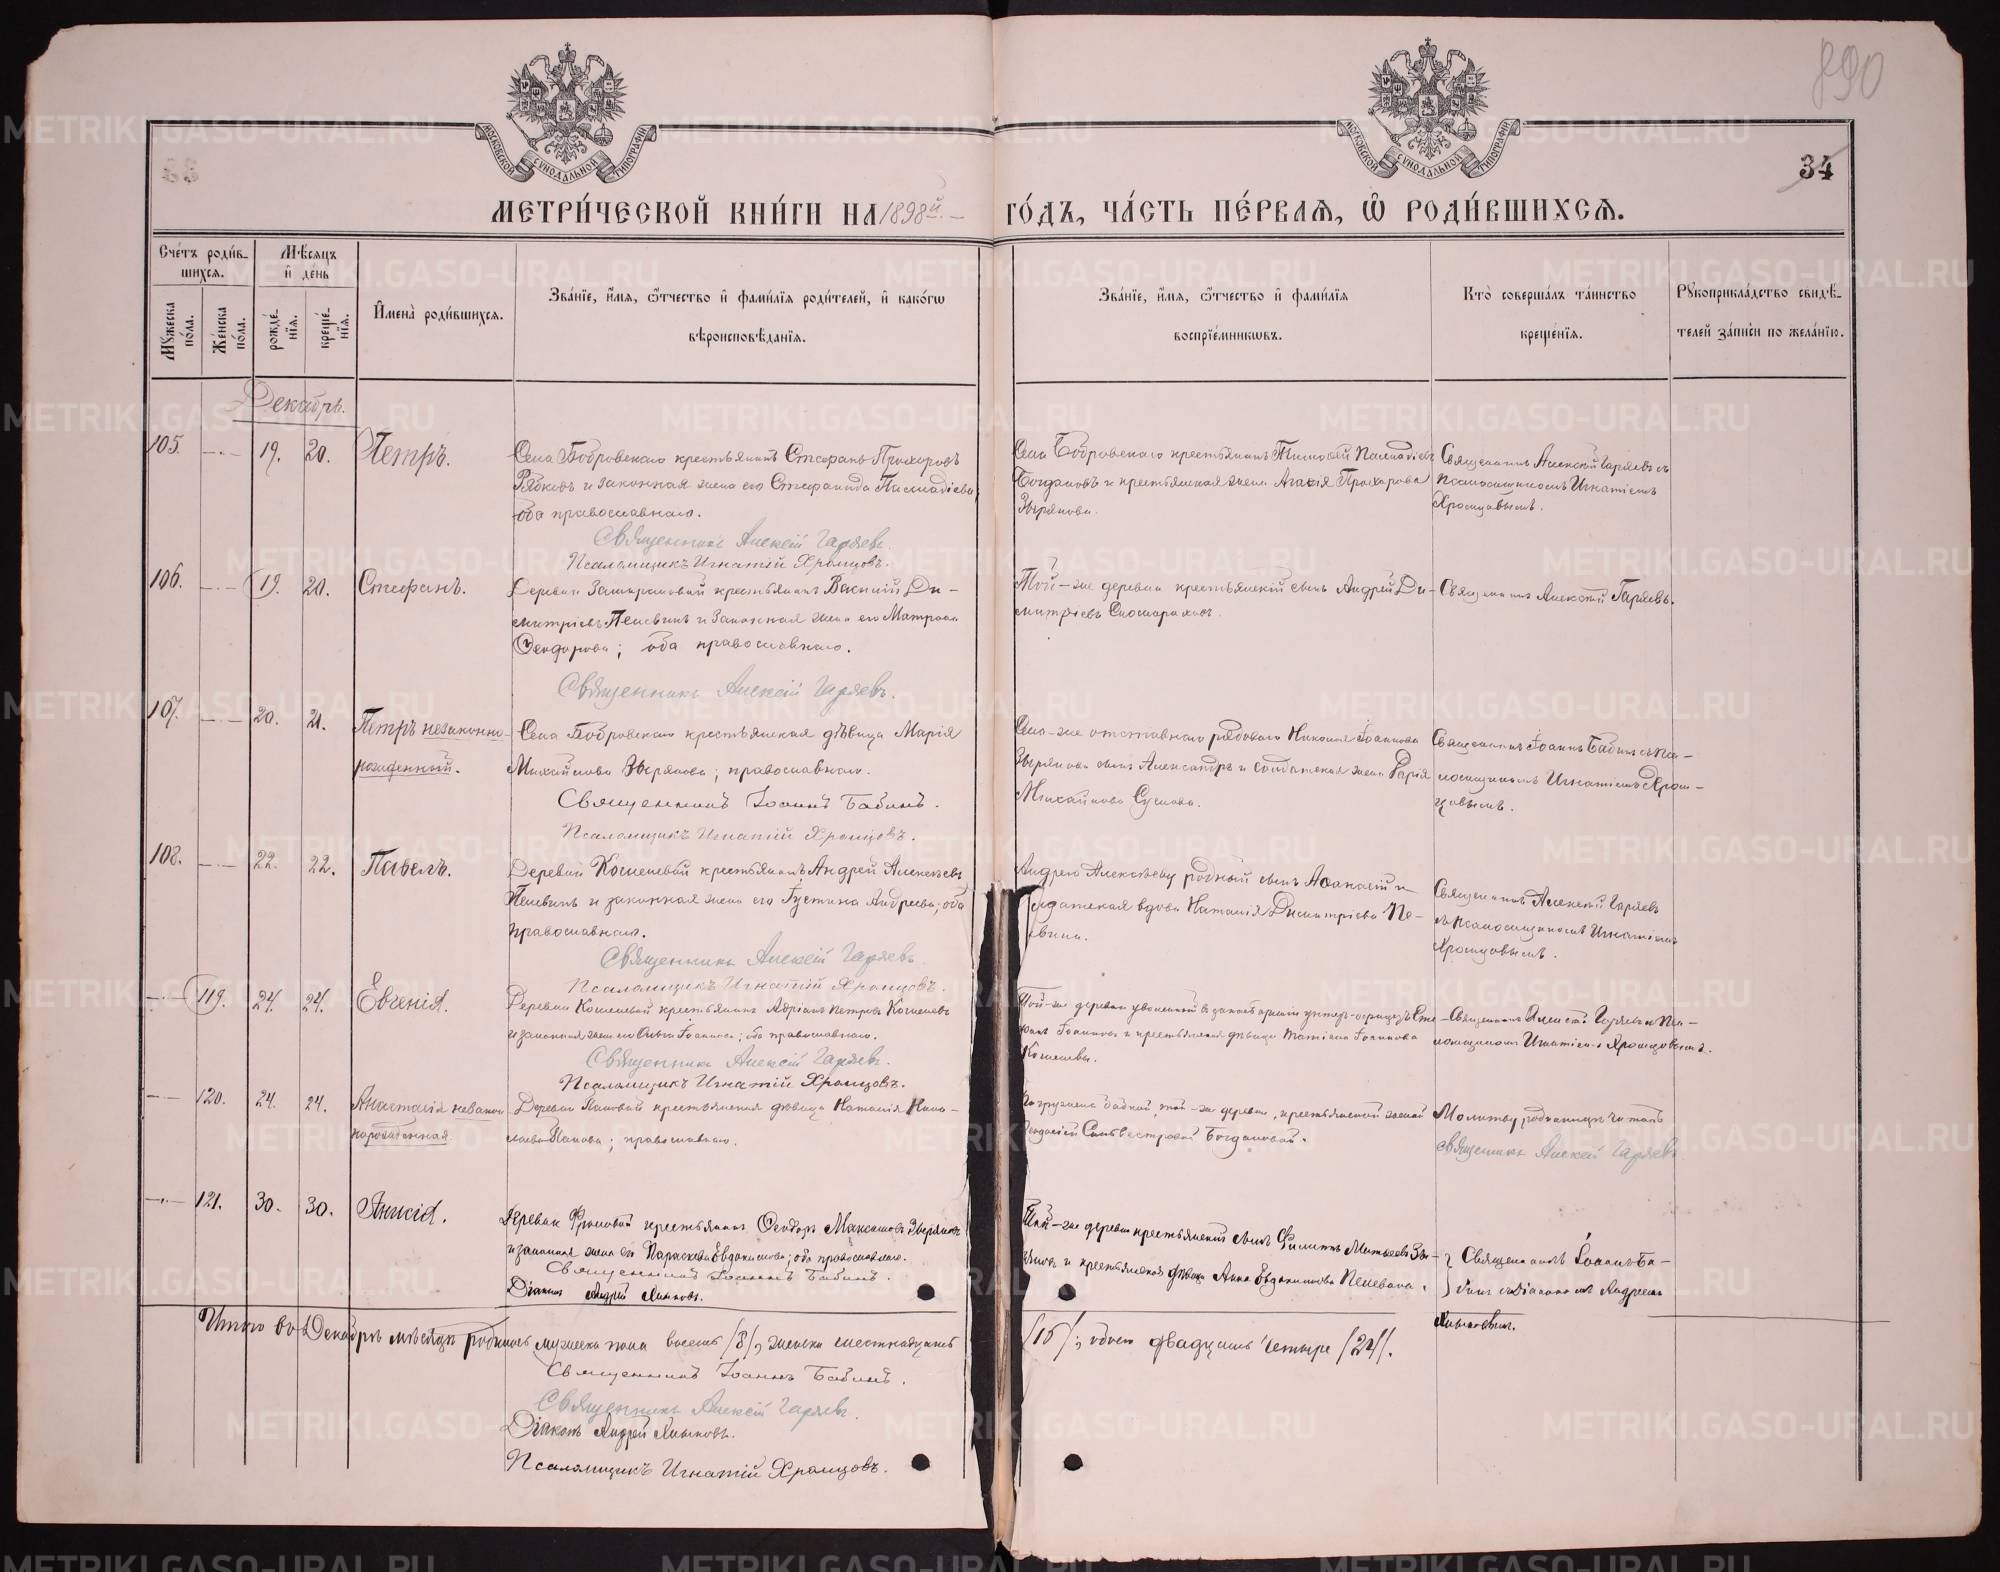 890
34
МОСКОВСКОЙ СУНОДАЛЬНОЙ ТИПОГРАФІИ
МОСКОВСКОЙ СУНОДАЛЬНОЙ ТИПОГРАФІИ
МЕТРИ́ЧЕСКОЙ КНИ́ГИ НА 1898й. ГО́ДЪ, ЧА́СТЬ ПЕ́РВАЯ, Ѡ҆ РОДИ́ВШИХСЯ.
Сче́тъ роди́в-
шихся.
Мꙋжеска по́ла.
Же́нска по́ла.
Мѣ́сяцъ и҆ де́нь
рожде́-
нїя.
креще́-
нїя.
И҆мена̀ роди́вшихся.
Зва́нїе, и҆́мя, ѻ҆́тчество и҆ фами́лїя роди́телей, и҆ како́гѡ
вѣроисповѣ́данїя.
Зва́нїе, и҆́мя, ѻ҆́тчество и҆ фами́лїя
воспрїе́мникѡвъ.
Кто̀ соверша́лъ та́инство
креще́нїя.
Рꙋкоприкла́дство свидѣ́-
телей за́писи по жела́нїю.
Декабрь.
105. 19. 20. Петръ.
Села Бобровскаго крестьянинъ Стефанъ Прохоровъ
Рябковъ и законная жена его Стефанида Палладіева;
оба православнаго.
Священникъ Алексій Гаряевъ.
Псаломщикъ Игнатій Храмцовъ.
Села Бобровскаго крестьянинъ Тимофей Палладіевъ
Богдановъ и крестьянская жена Агафія Прохорова
Зырянова.
Священникъ Алексій Гаряевъ съ
псаломщикомъ Игнатіемъ
Храмцовымъ.
106. 19. 20. Стефанъ.
Деревни Замараевой крестьянинъ Василій Ди-
митріевъ Пелевинъ и законная жена его Матрона
Ѳеодорова; оба православнаго.
Священникъ Алексій Гаряевъ.
Той-же деревни крестьянскій сынъ Андрей Ди-
митріевъ
Священникъ Алексій Гаряевъ.
107. 20. 21. Петръ незаконно-
рожденный.
Села Бобровскаго крестьянская дѣвица Марія
Михайлова Зырянова; православнаго.
Священникъ Іоаннъ Бабинъ.
Псаломщикъ Игнатій Храмцовъ.
Села-же отставнаго рядового Николая Іоаннова
Зырянова сынъ Александръ и солдатская жена Дарія
Михайлова Суслова.
Священникъ Іоаннъ Бабинъ съ пса-
ломщикомъ Игнатіемъ Храм-
цовымъ.
108. 22. 22. Павелъ.
Деревни Кошелевой крестьянинъ Андрей Алексѣевъ
Пелевинъ и законная жена его Іустина Андреева; оба
православнаго.
Священникъ Алексій Гаряевъ.
Псаломщикъ Игнатій Храмцовъ.
Андрею Алексѣеву родный сынъ Аѳанасій и
солдатская вдова Наталія Димитріева Пе-
левина.
Священникъ Алексій Гаряевъ
съ псаломщикомъ Игнатіемъ
Храмцовымъ.
119. 24. 24. Евгенія.
Деревни Кошелевой крестьянинъ Адріанъ Петровъ Кошелевъ
и законная жена его Ольга Іоаннова; оба православнаго.
Священникъ Алексій Гаряевъ.
Псаломщикъ Игнатій Храмцовъ.
Той-же деревни уволенный въ запасъ арміи унтеръ-офицеръ Сте-
фанъ Іоанновъ и крестьянская дѣвица Татіана Іоаннова
Кошелевы.
Священникъ Алексій Гаряевъ съ пса-
ломщикомъ Игнатіемъ Храмцовымъ.
120. 24. 24. Анастасія незакон-
норожденная.
Деревни Паповой крестьянская дѣвица Наталія Нико-
лаева Папова; православнаго.
Погружена бабкой, той-же деревни, крестьянской женой
Ѳеодосіей Сильвестровой Богдановой.
Молитву родильницѣ читалъ
священникъ Алексій Гаряевъ
121. 30. 30. Анисія.
Деревни крестьянинъ Ѳеодоръ Максимовъ Зырянов
и законная жена его Параскева Евдокимова; оба православнаго.
Священникъ Іоаннъ Бабинъ.
Діаконъ Андрей Лыжовъ.
Той-же деревни крестьянскій сынъ Филиппъ Матѳеевъ Зы-
ряновъ и крестьянская дѣвица Анна Евдокимова Пелевина.
Священникъ Іоаннъ Ба-
бинъ съ діакономъ Андреемъ
Итого въ Декабрѣ мѣсяцѣ родилось мужеска пола восемь /8/, женска шестнадцать /16/; обоего двадцать четыре /24/.
Священникъ Іоаннъ Бабинъ.
Священникъ Алексій Гаряевъ.
Діаконъ Андрей
Псаломщикъ Игнатій Храмцовъ.
METRIKI.GASO-URAL.RU